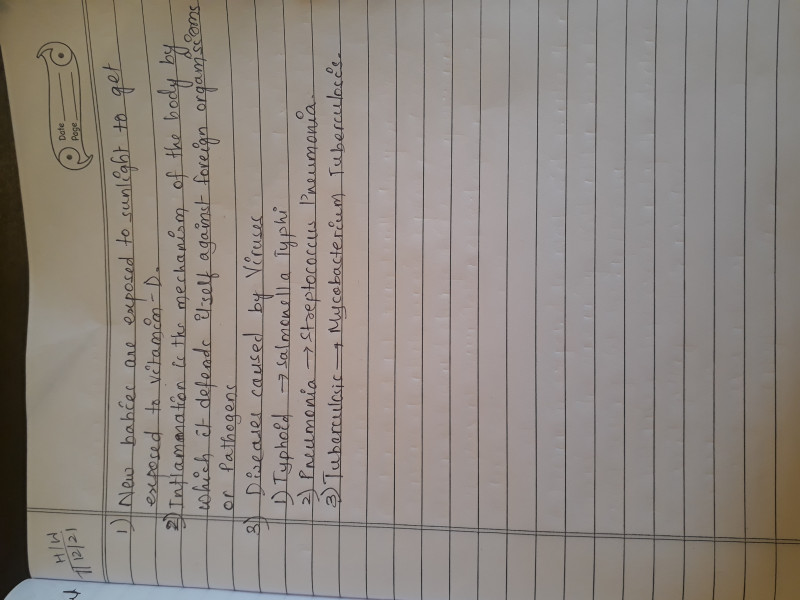 Date
Page
H/W
1/12/21
1) New babies are exposed to sunlight to get
exposed to vitamin-D.
2) Inflammation is the mechanism of the body by
which it defends itself against foreign organisms
or Pathogens
3) Diseases caused by Viruses
1) Typhoid → Salmonella Typhi
2) Pneumonia → Streptococcus Pneumonia.
3) Tuberculsis → Mycobacterium Tuberculosis.